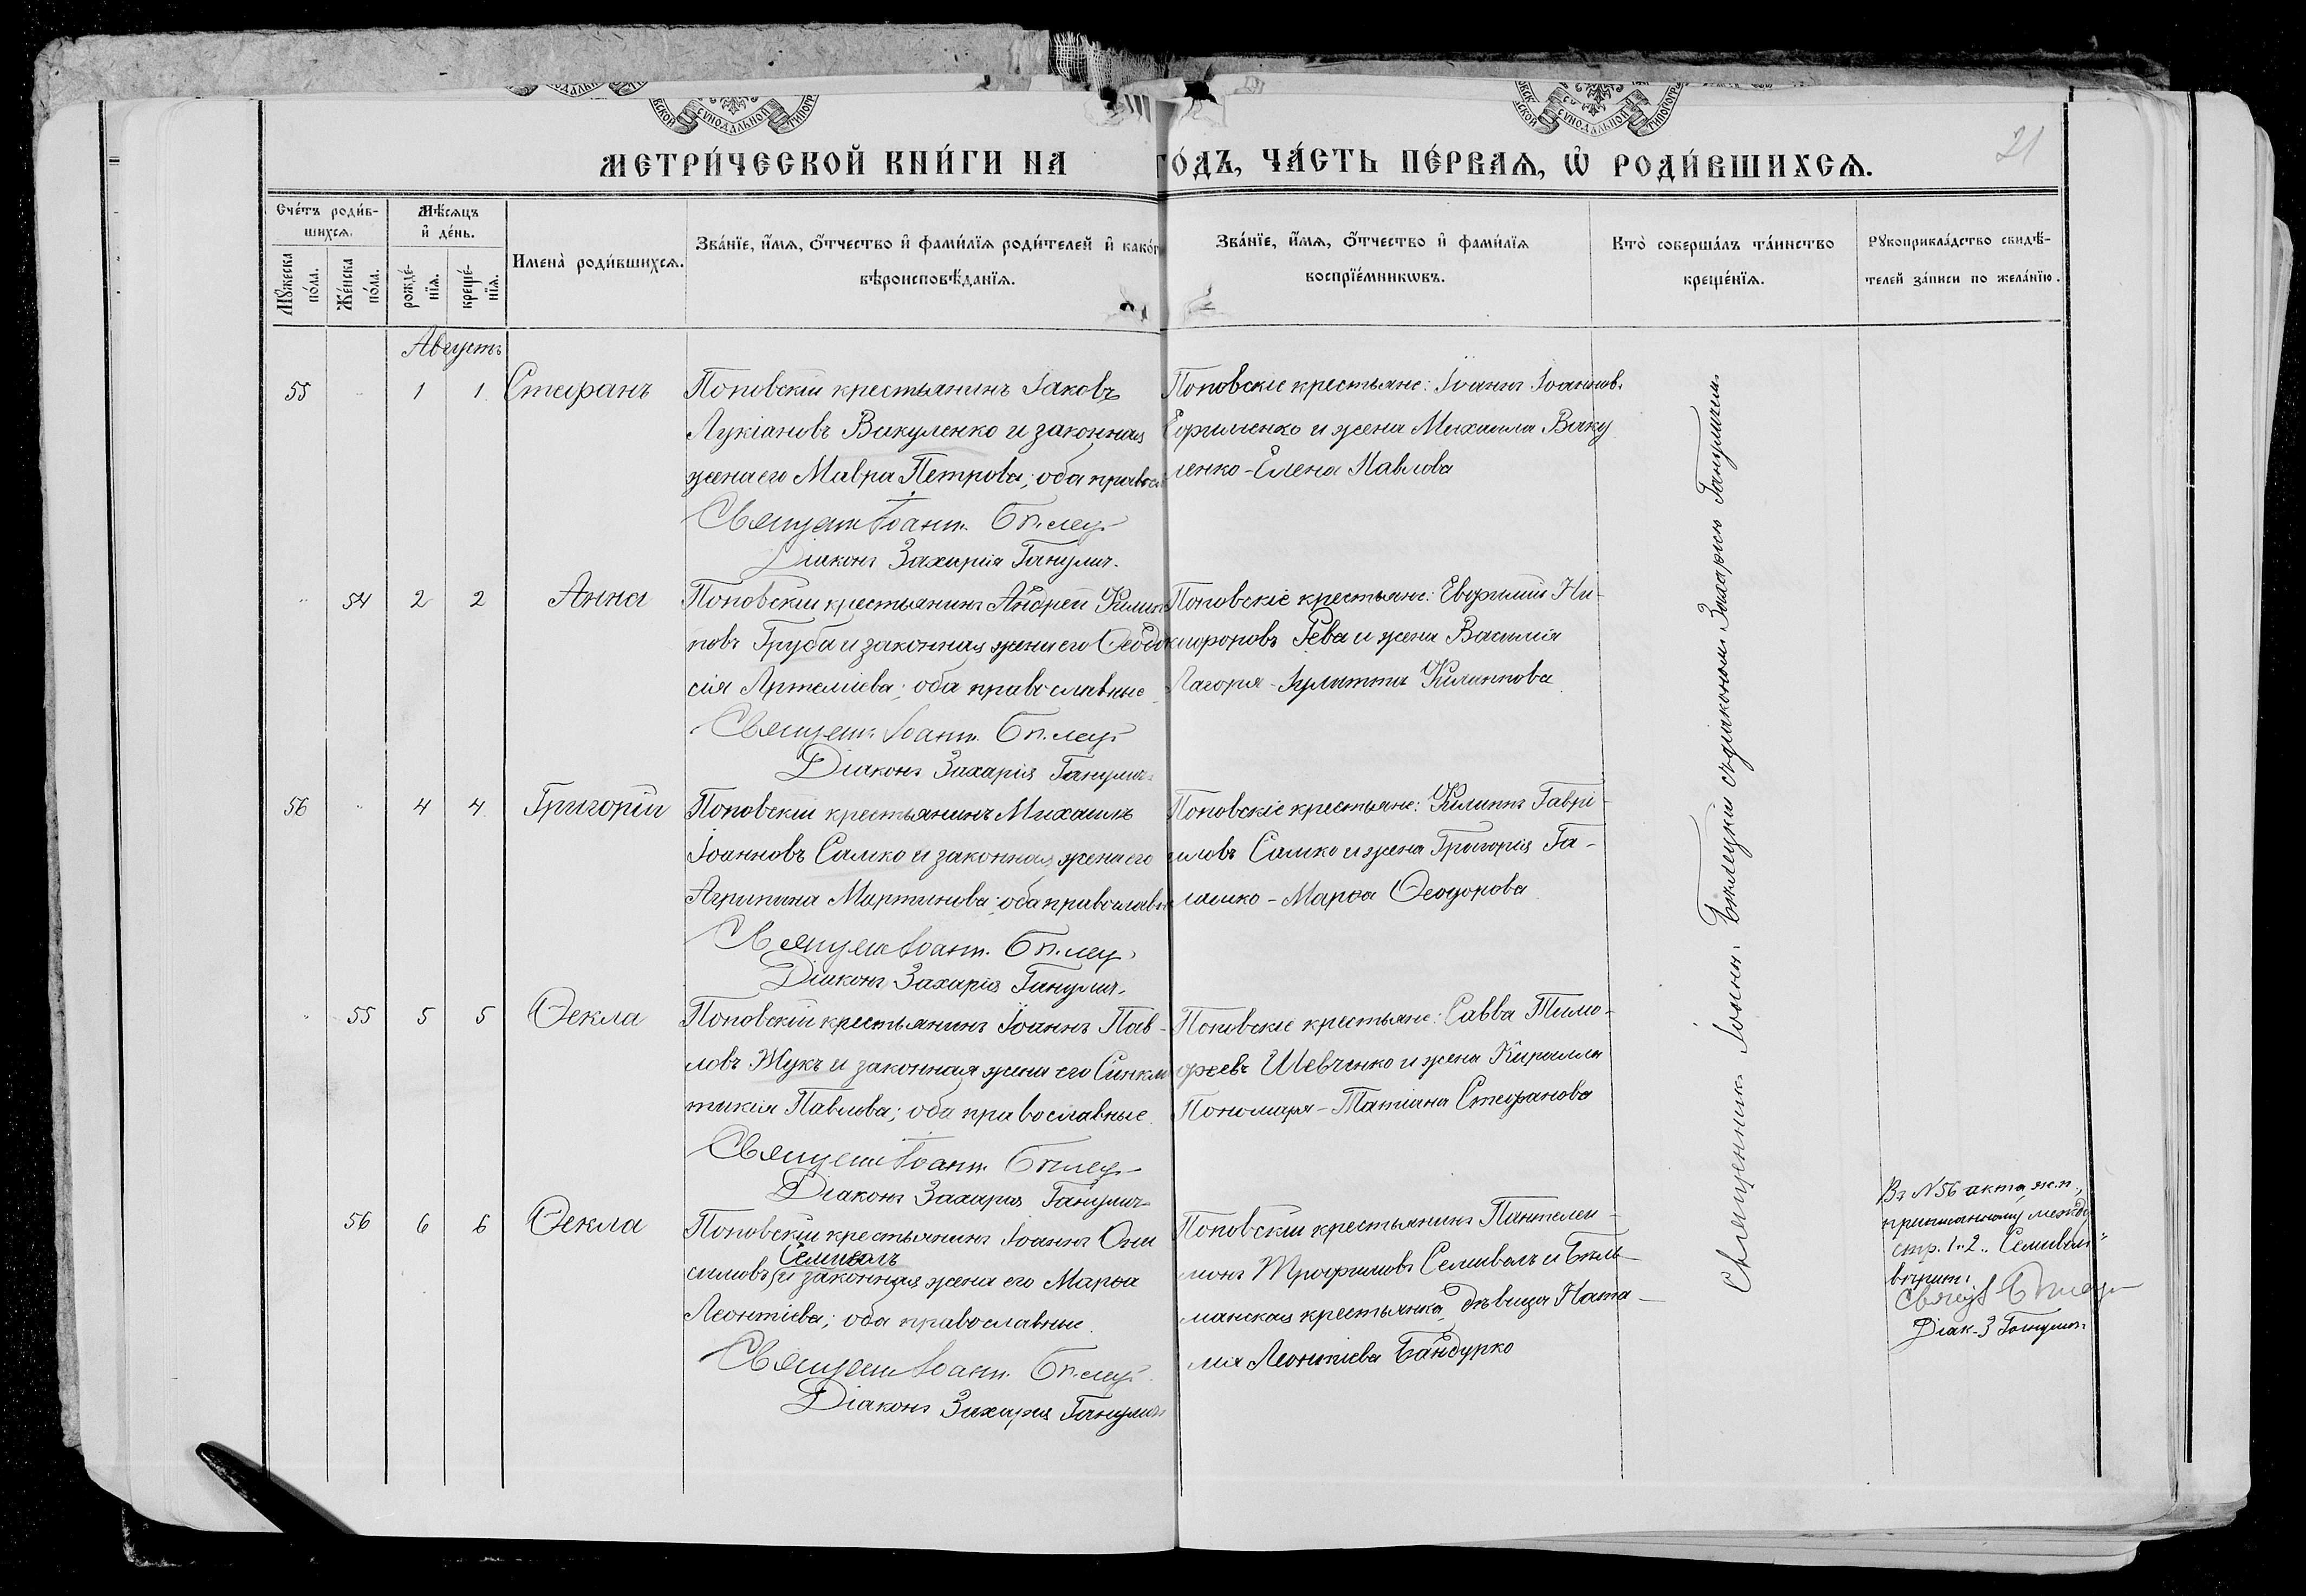 21
МЕТРИ́ЧЕСКОЙ КНИ́ГИ НА ГО́ДЪ, ЧА́СТЬ ПЕ́РВАѦ, Ѡ РОДИ́ВШИХСѦ.
Сче́тъ роди́в-
шихсѧ.
Мꙋ́жеска по́ла.
Же́нска по́ла.
Мѣ́сѧцъ
и҆ де́нь.
рожде́-
нїѧ.
креще́-
нїѧ.
Имена̀ роди́вшихсѧ.
Зва́нїе, и҆́мѧ, ѻ҆́тчество и҆ фами́лїѧ роди́телей и҆ како́г
вѣроисповѣ́данїѧ.
Зва́нїе, и҆́мѧ, ѻ҆́тчество и҆ фами́лїѧ
воспрїе́мникѡвъ.
Кто̀ соверша́лъ та́инство
креще́нїѧ.
Рꙋкоприкла́дство свидѣ́-
телей за́писи по жела́нїю.
Августъ
55 1 1 Стефанъ
Поповскій крестьянинъ Іаковъ
Лукіановъ Викуленко и законная
жена его Мавра Петрова; оба правос
Священ Іоанн. Бѣлец.
Діаконъ Захарія Ганулич.
Поповскіе крестьяне: Іоаннъ Іоаннов.
Ефименко и жена Михаила Ваку
ленко - Елена Павлова
54 2 2 Анна
Поповскій крестьянинъ Андрей Филип
повъ Груба и законная жена его Ѳеодо
сія Артеміева; оба православные
Священ. Іоанн. Бѣлец.
Діаконъ Захарія Ганулич.
Поповскіе крестьяне: Евфимій Ни-
кифоровъ Рева и жена Василія
Лагоря - Іулитта Филиппова
56 4 4 Григорій
Поповскій крестьянинъ Михаилъ
Іоанновъ Самко и законная жена его
Агрипина Мартинова; оба православн
Священ Іоанн. Бѣлец.
Діаконъ Захарія Ганулич.
Поповскіе крестьяне: Филиппъ Гаврі-
иловъ Самко и жена Григорія Га-
лашко - Марѳа Ѳеодорова
55 5 5 Ѳекла
Поповскій крестьянинъ Іоаннъ Пав-
ловъ Жукъ и законная жена его Синкли
тикія Павлова; оба православные.
Священ Іоанн. Бѣлец.
Діаконъ Захарія Ганулич.
Поповскіе крестьяне: Савва Тимо-
феевъ Шевченко и жена Кирилла
Пономаря - Татіана Стефанова
56 6 6 Ѳекла
Поповскій крестьянинъ Іоаннъ Они
Семиволъ
симовъ и законная жена его Марѳа
Леонтіева; оба православные.
Священ Іоанн. Бѣлец.
Діаконъ Захарія Ганулич.
Поповскій крестьянинъ Пантелеи-
монъ Трофимовъ Семиволъ и Бѣли-
манская крестьянка, дѣвица Ната-
лія Леонтіева Бандурко
Священникъ Іоаннъ Бѣлецкій съ діакономъ Захаріею Гануличемъ
Въ N 56 акта ж.п.,
приписанному между
стр. 1 . 2 . . Семиволъ"
вѣрить:
Свящ І Бѣлец
Діак. З Ганулич.